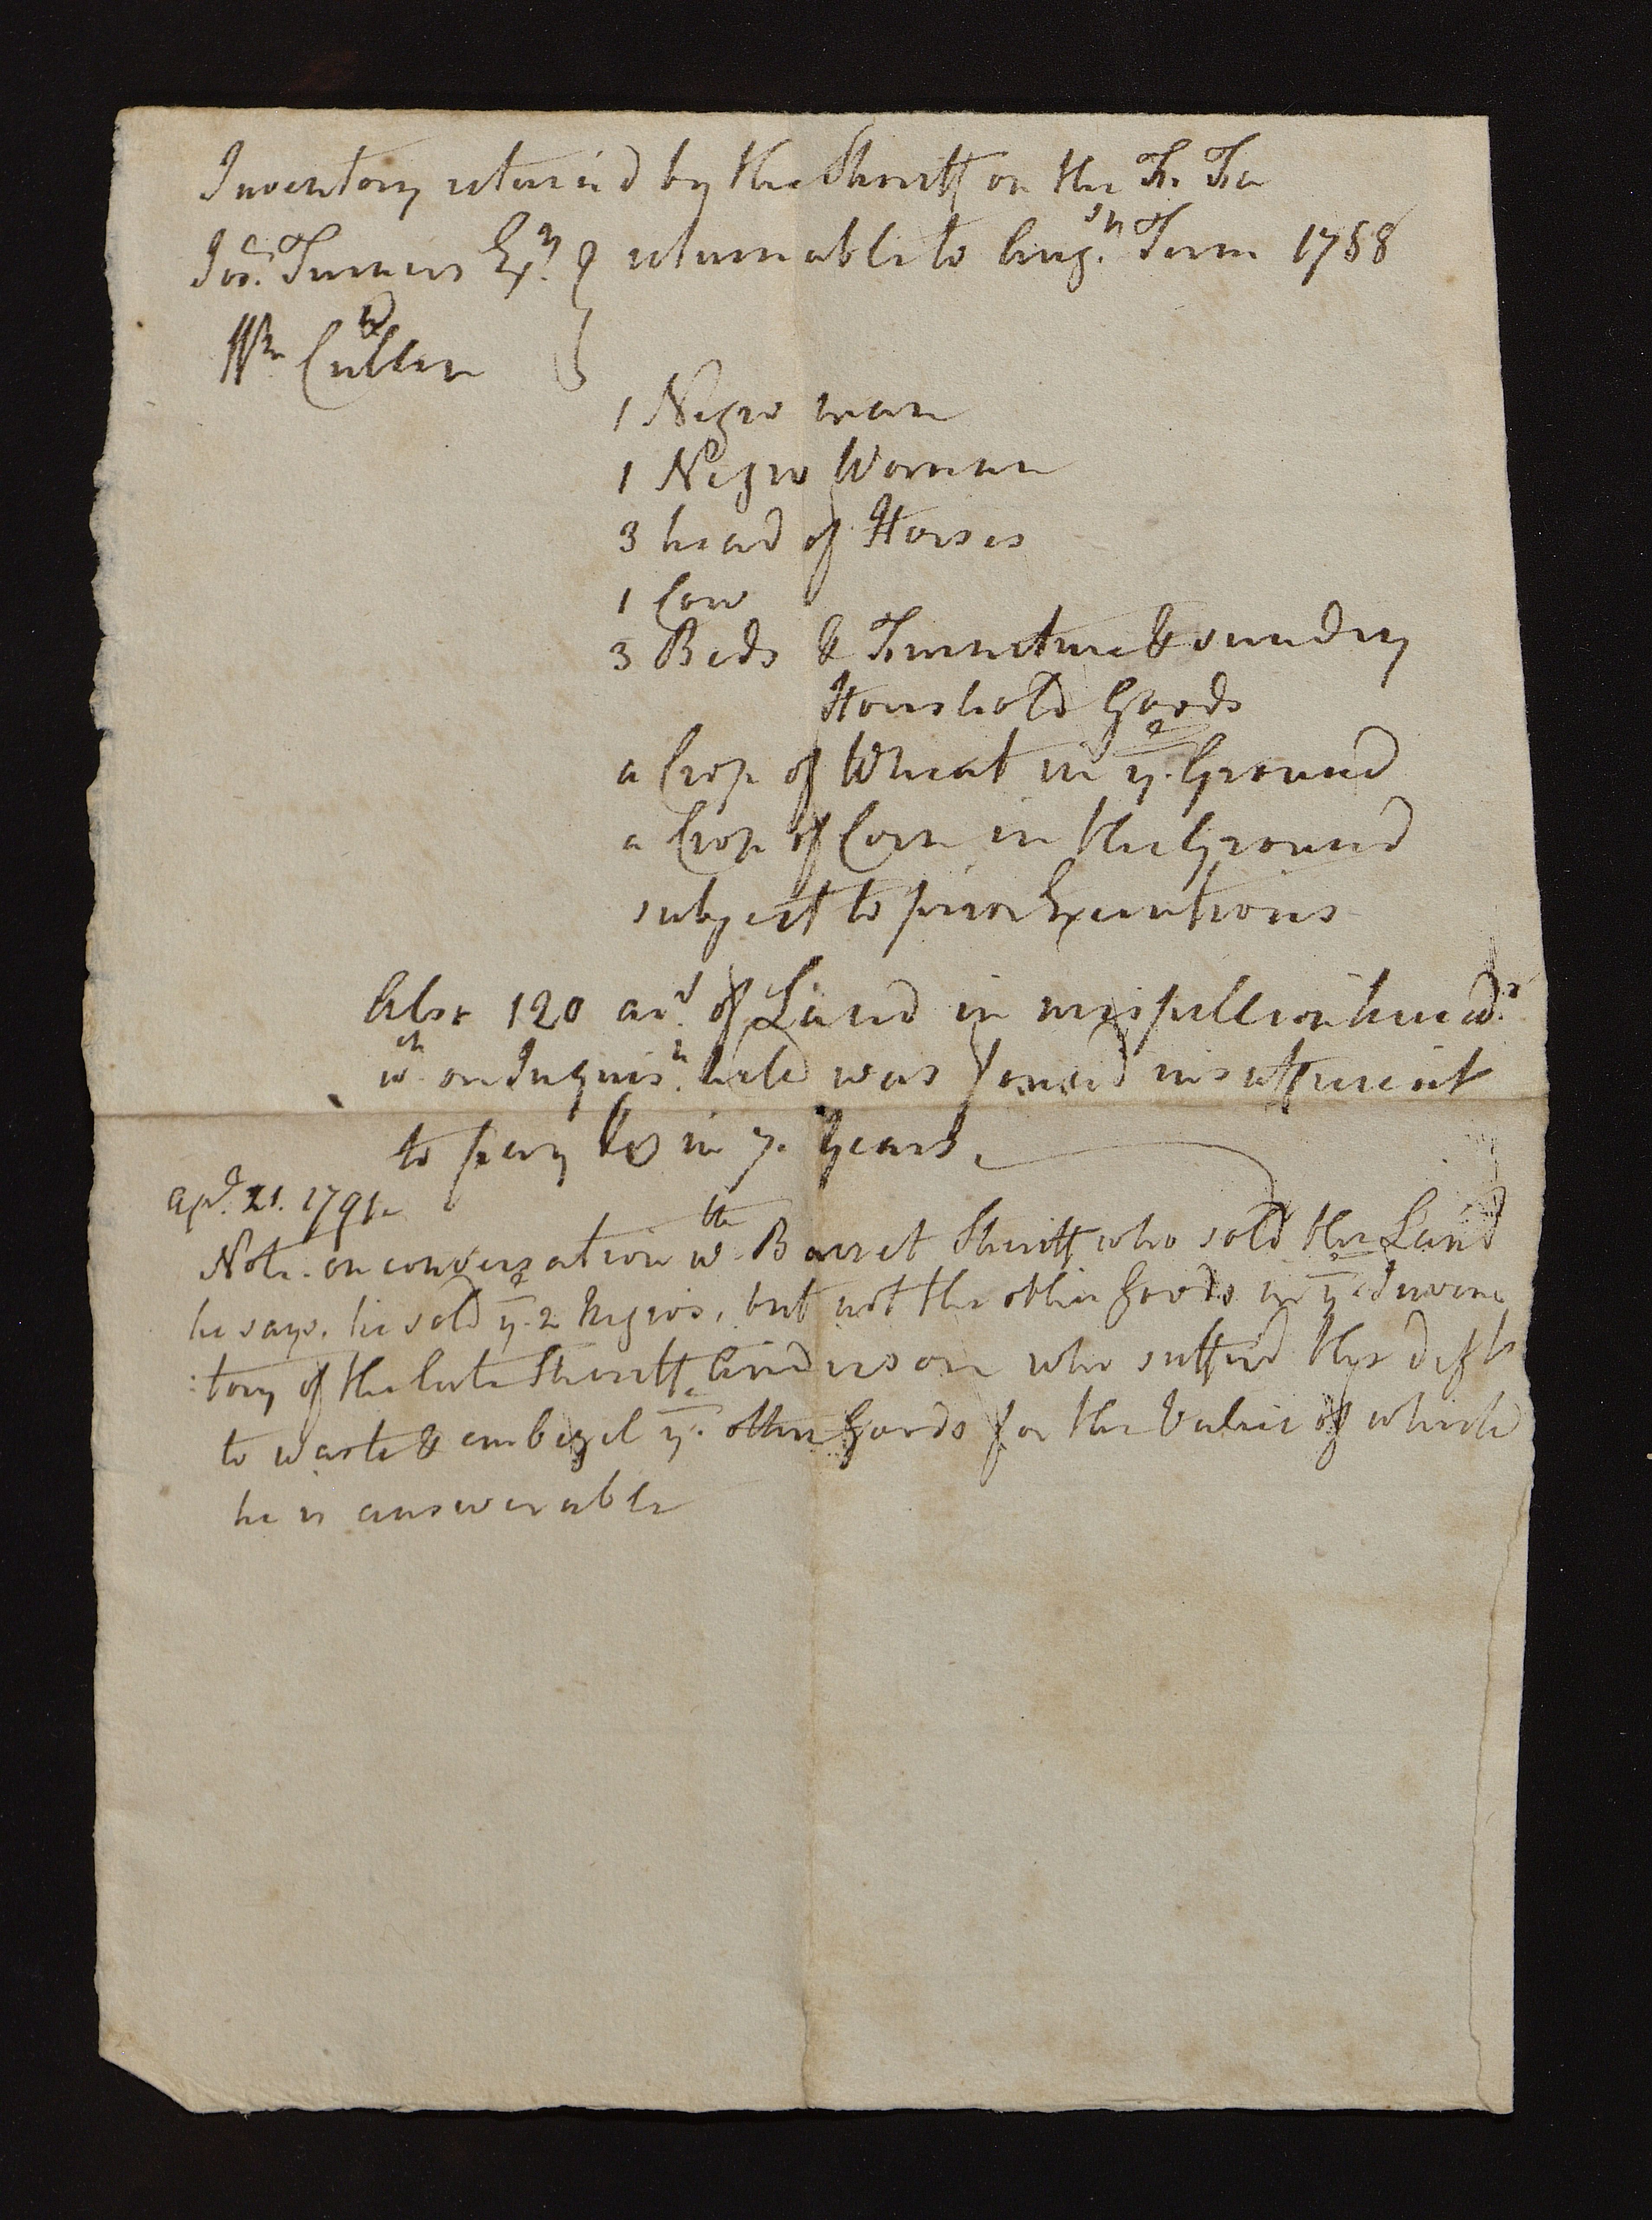 Inventory return'd by the Sheriff on the Fi. Fa
Jos. Turners Exrs } returnable to Aug. Term 1788
vs
Wm Cullen }
1 Negro man
1 Negro Woman
3 head of Horses
1 Cow
3 Beds & Furniture & sundry
Houshold Goods
a Crop of Wheat in ye Ground
a Crop of Corn in the Ground
subject to prior Executions
Also 120 acs. of Land in mispillion hundd.
wch on Inquisn. held was found insufficient
to pay &c in 7. Years.
Apl. 21. 1791.
Note. on conversation wth Barret Sheriff who sold the Land
he says, he sold ye 2 Negros, but not the other Goods in ye Inven
:tory of the late Sheriff Anderson who suffer'd the deft
to waste & embezel ye other Goods for the value of which
he is answerable